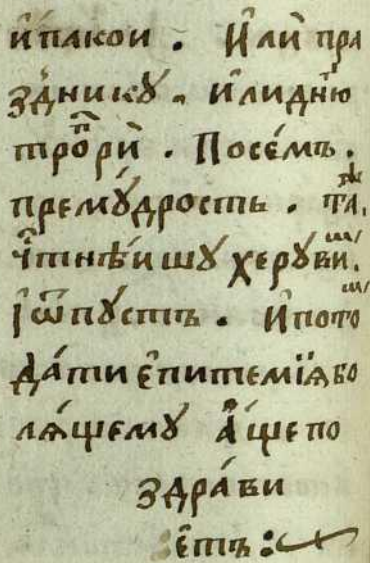 и҆пакои . И҆ли пра
зд́нику . и҆лидн҃ю
тропⷬ҇ри . Посе́мъ .
прему́дрость . таⷤ .
чⷭ҇тнѣ́ишу херувиⷨ .
і҆ѿпустъ . И҆потоⷨ
да́ти є҆питемїѧ бо
лѧ́щему а҆́ще по
здра́ви
є҆тъ :